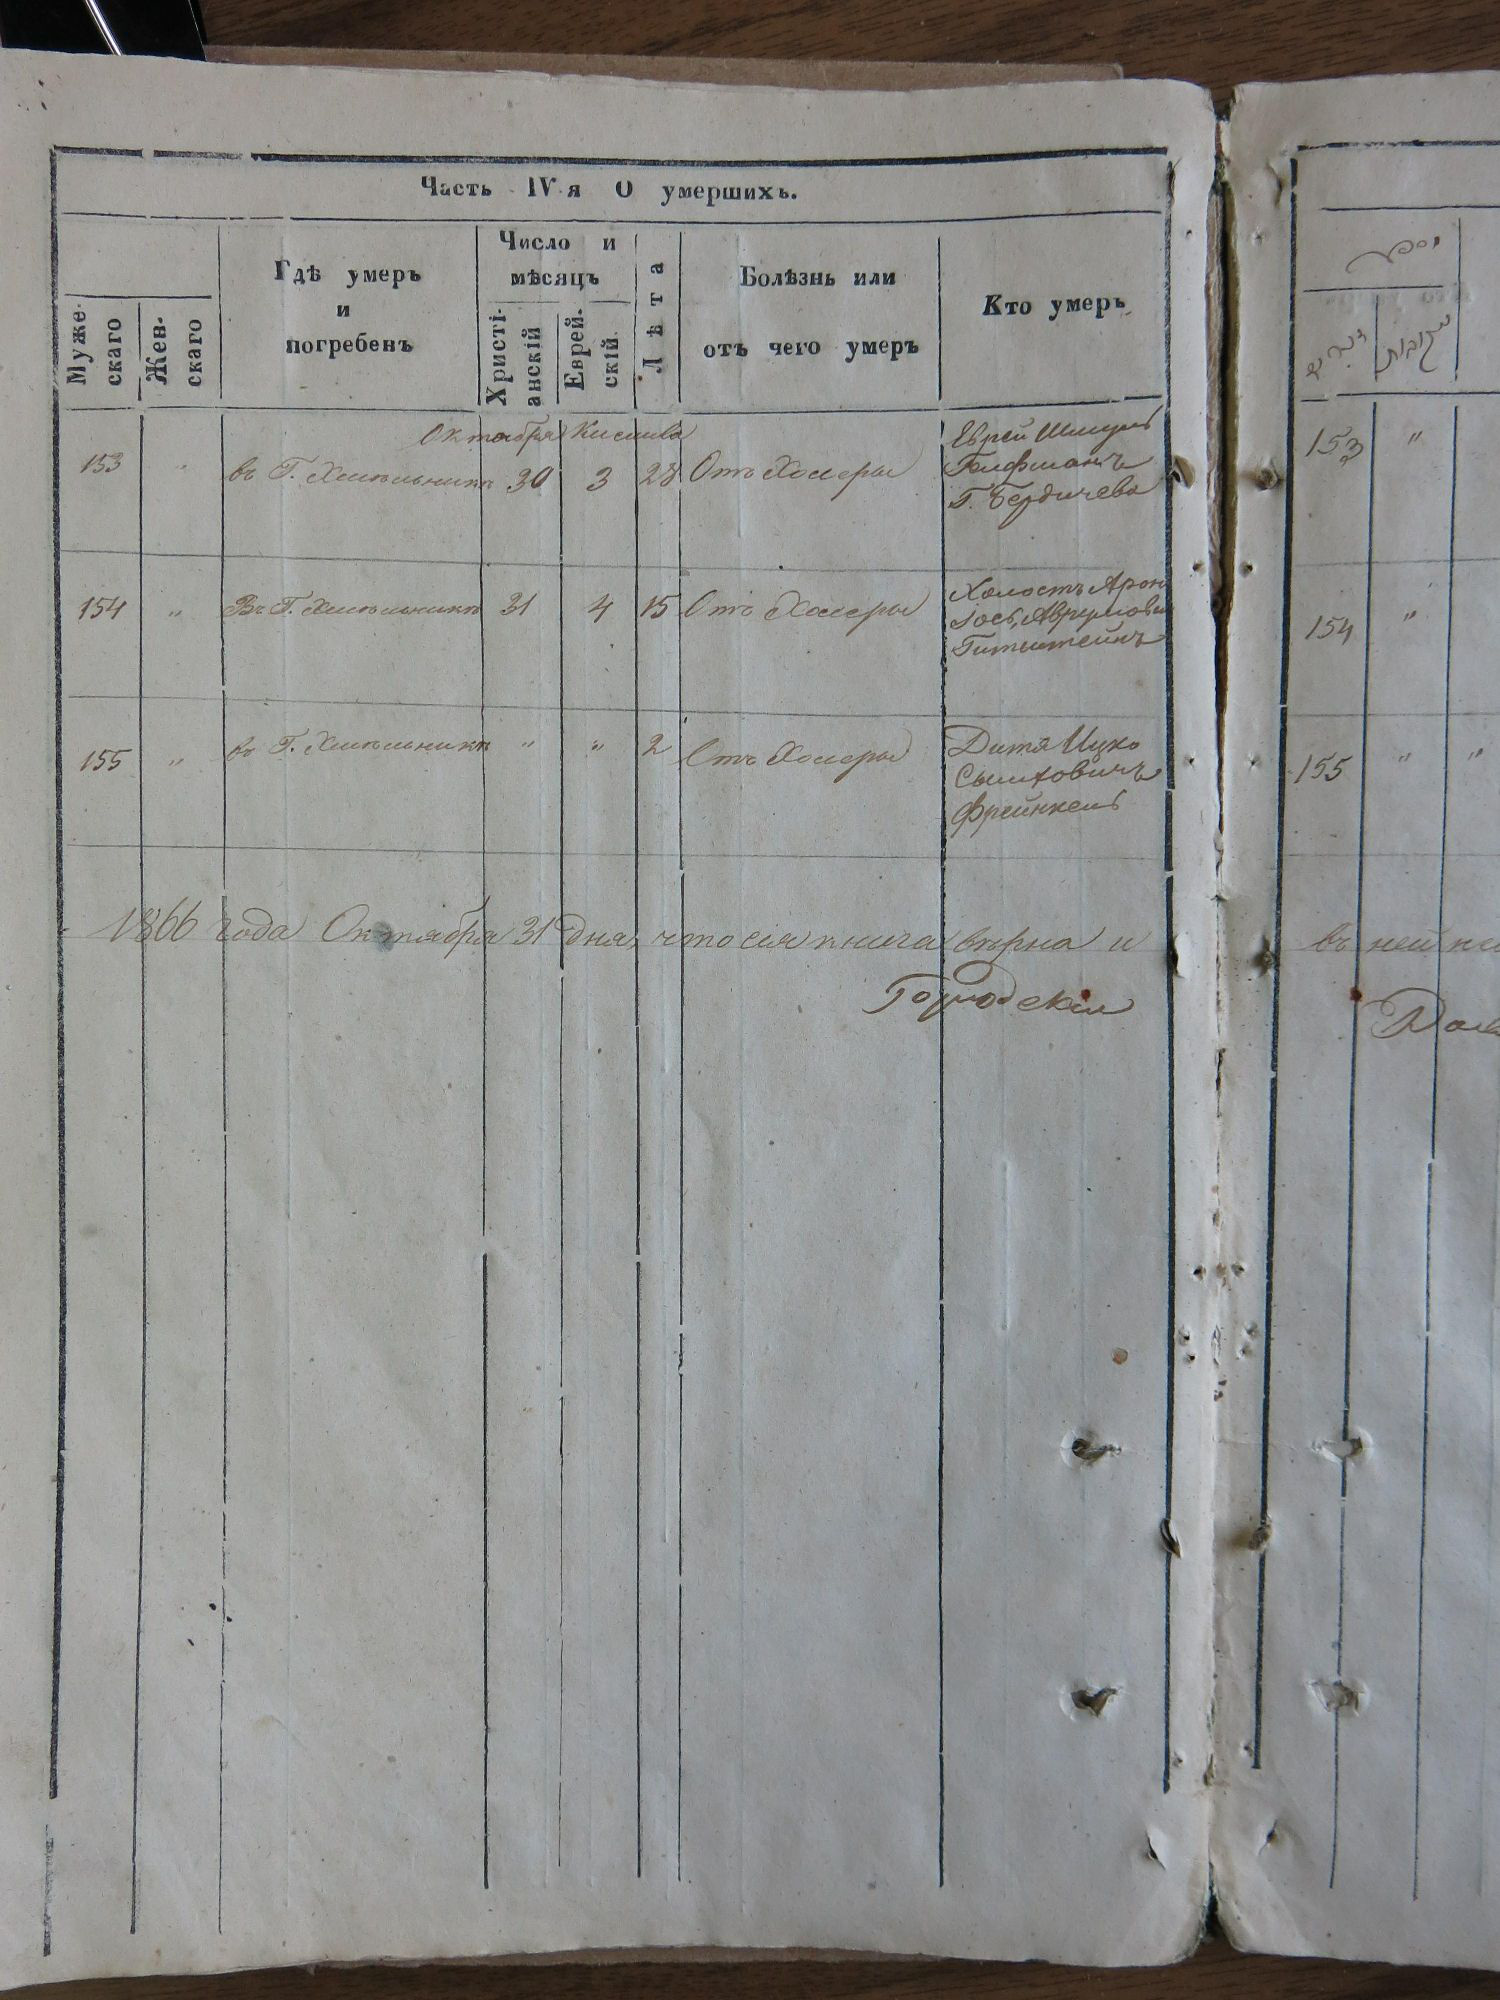 Часть IV-я О умершихъ.
Муже-
скаго
Жен-
скаго
Гдѣ умеръ
и
погребенъ
Число и
мѣсяцъ
Христі-
анскій
Еврей-
скій
Лѣта
Болѣзнь или
отъ чего умеръ
Кто умеръ
Октября Кислива
153 " въ Г. Хмѣльникѣ 30 3 28 Отъ Холеры
Еврей Шмуль
Гелфманъ
Г. Бердичева
154 " Въ Г. Хмѣльникѣ 31 4 15 Отъ Холеры
Холостъ Арон
Аврумови
Гитштейнъ
155 " въ Г. Хмѣльникѣ " " 2 Отъ Холеры
Дитя Ицко
Сымховичъ
Френкель
1866 года Октября 31 дня, что сия книга вѣрна и
Городской
153 "
נקבות
154 "
155 " "
въ ней